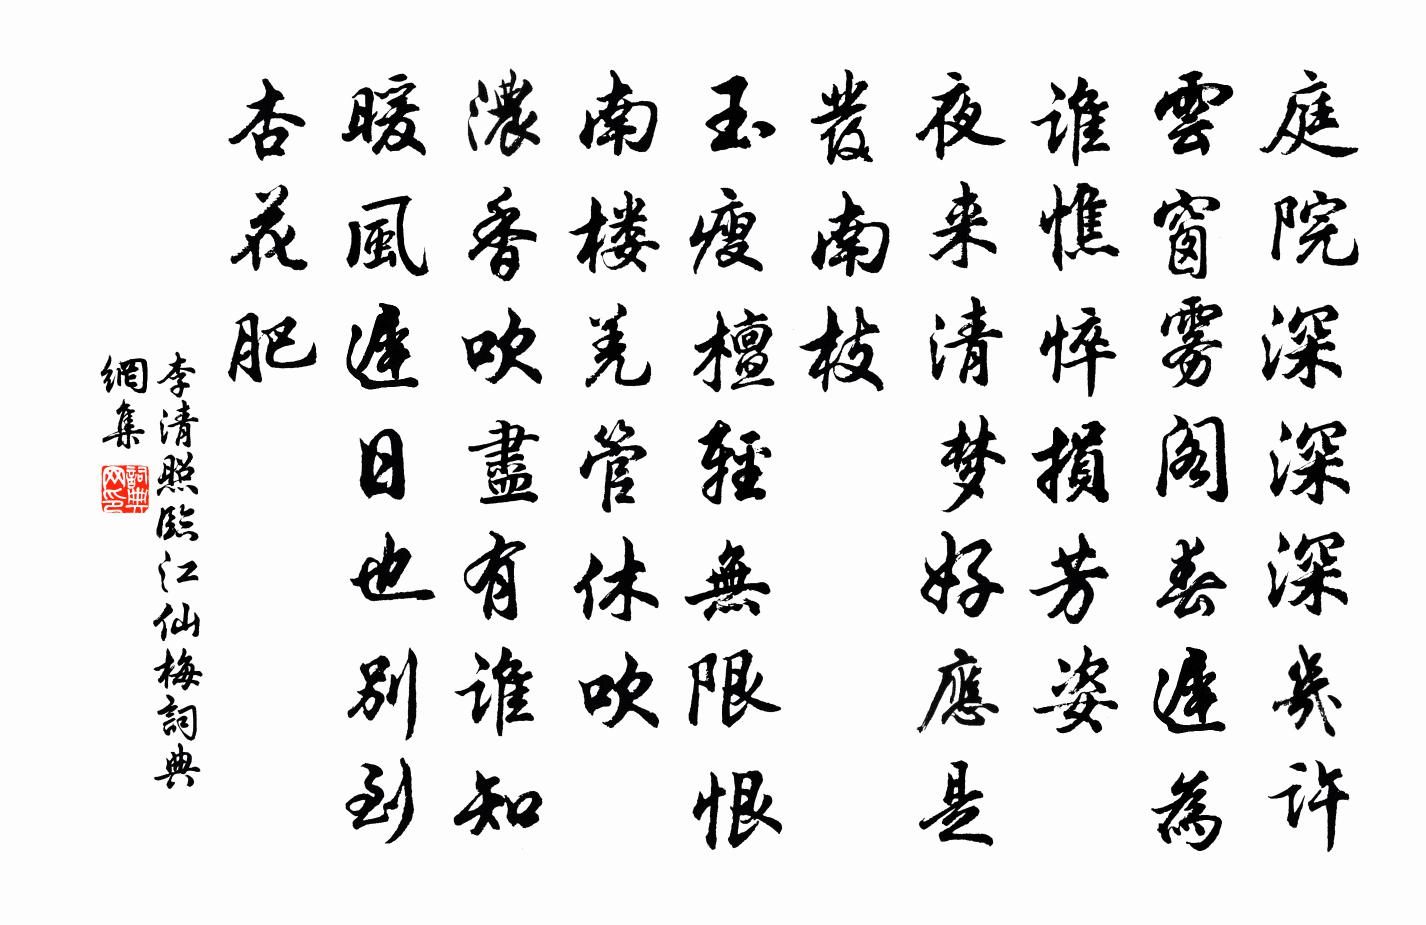 庭院深深深幾许
雲窗雾阁春遲為
谁憔悴損芳姿
夜来清梦好應是
發南枝
玉瘦檀輕無限恨
南楼羌管休吹
濃香吹盡有谁知
暖風遲日也别到
杏花肥
李清照臨江仙梅詞典
網集
詞典
网印